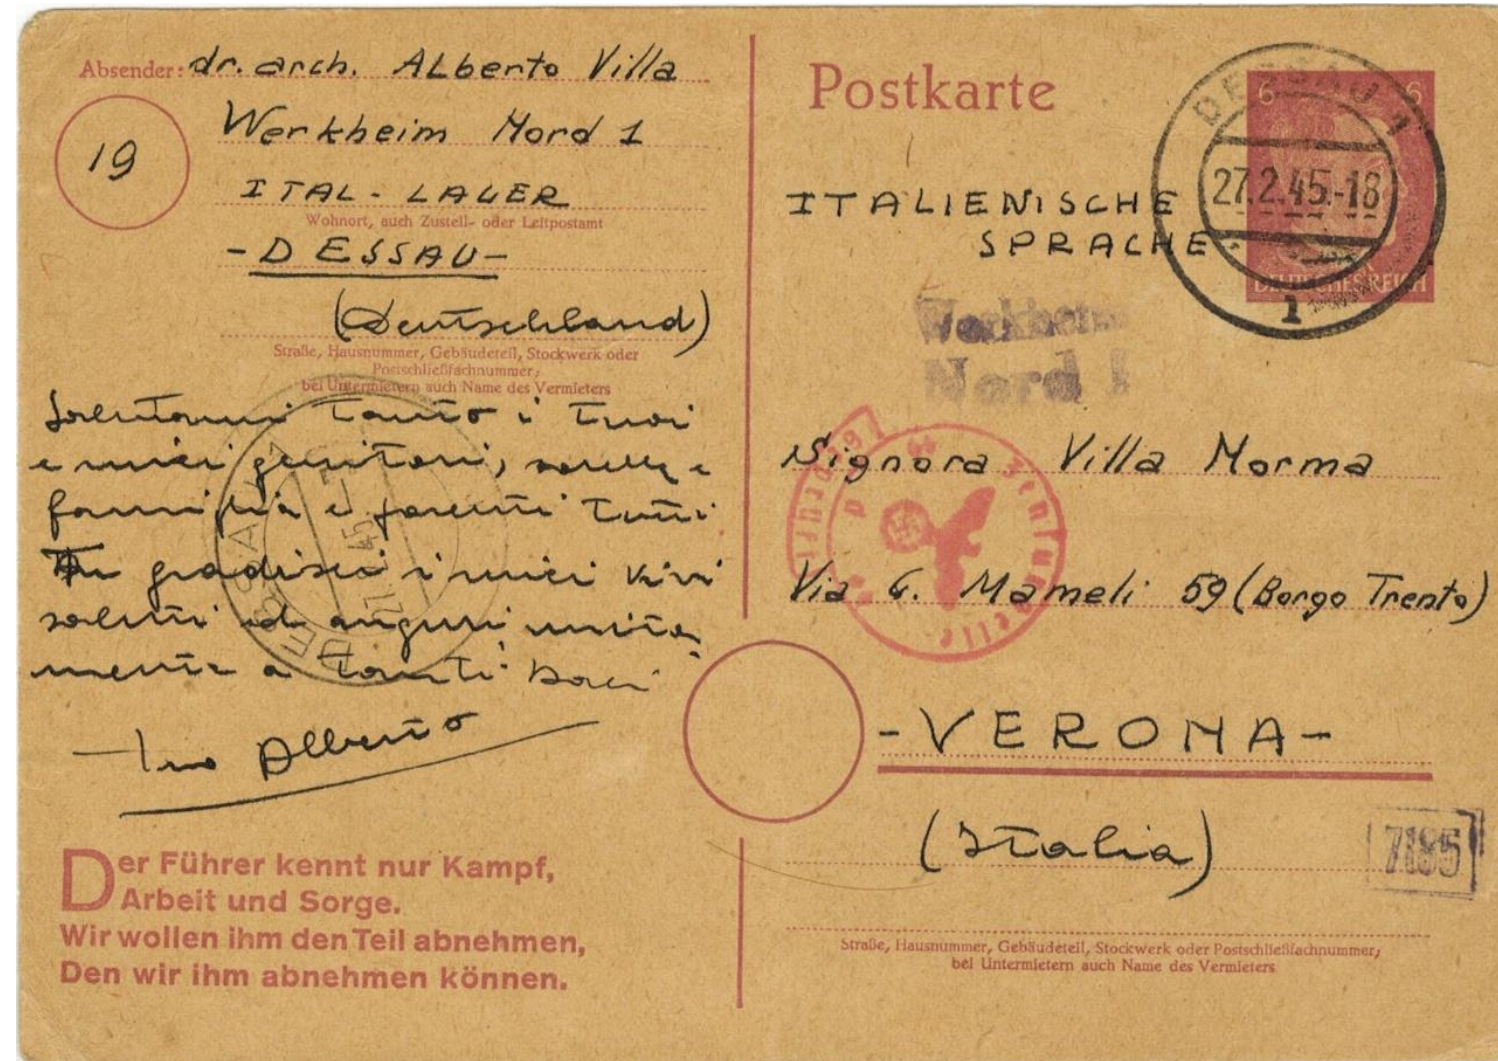 Absender: dr. arch. Alberto Villa
19
Werkheim Nord 1
ITAL - LAGER
Wohnort, auch Zustell- oder Leitpostamt
- DESSAU -
(Deutschland)
Straße, Hausnummer, Gebäudeteil, Stockwerk oder
Postschließfachnummer;
bei Untermietern auch Name des Vermieters
Salutami tanto i tuoi
e miei genitori, sorelle e
famiglia e parenti tutti
Tu gradisci i miei vivi
saluti ed auguri unita
mente a tanti baci
tuo Alberto
DESSAU
27.2.45
Der Führer kennt nur Kampf,
Arbeit und Sorge.
Wir wollen ihm den Teil abnehmen,
Den wir ihm abnehmen können.
Postkarte
6 6
DEUTSCHES REICH
DESSAU 1
27.2.45.-18
1
ITALIENISCHE
SPRACHE
Werkheim
Nord 1
Zensurstelle
Signora Villa Norma
Via G. Mameli 59 (Borgo Trento)
- VERONA -
(Italia)
7185
Straße, Hausnummer, Gebäudeteil, Stockwerk oder Postschließfachnummer;
bei Untermietern auch Name des Vermieters